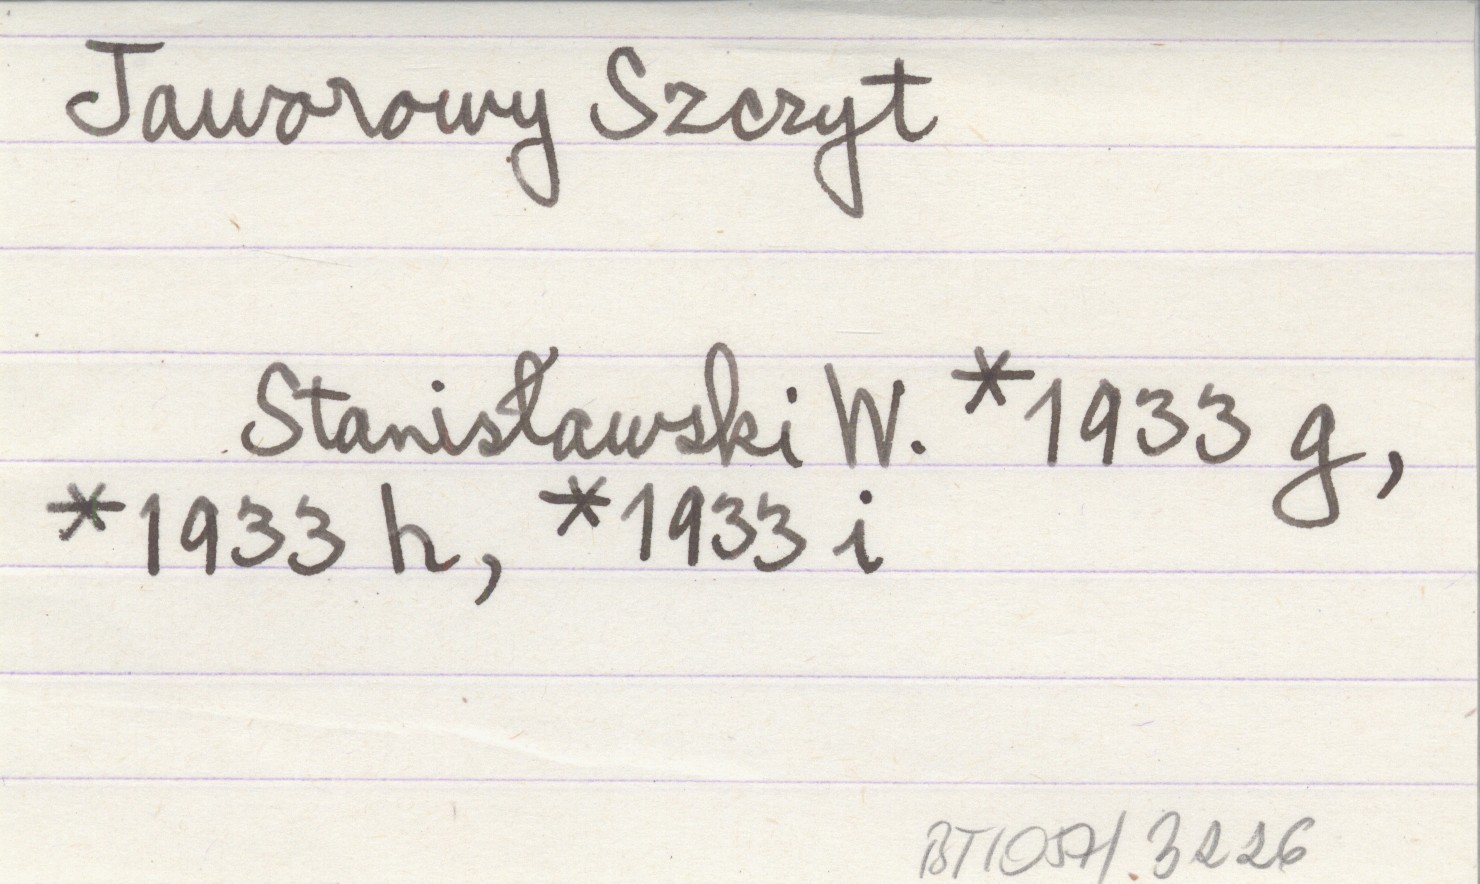 Jaworowy Szczyt
Stanisławski W. *1933 g,
*1933 h, *1933 i
BT1057/3226